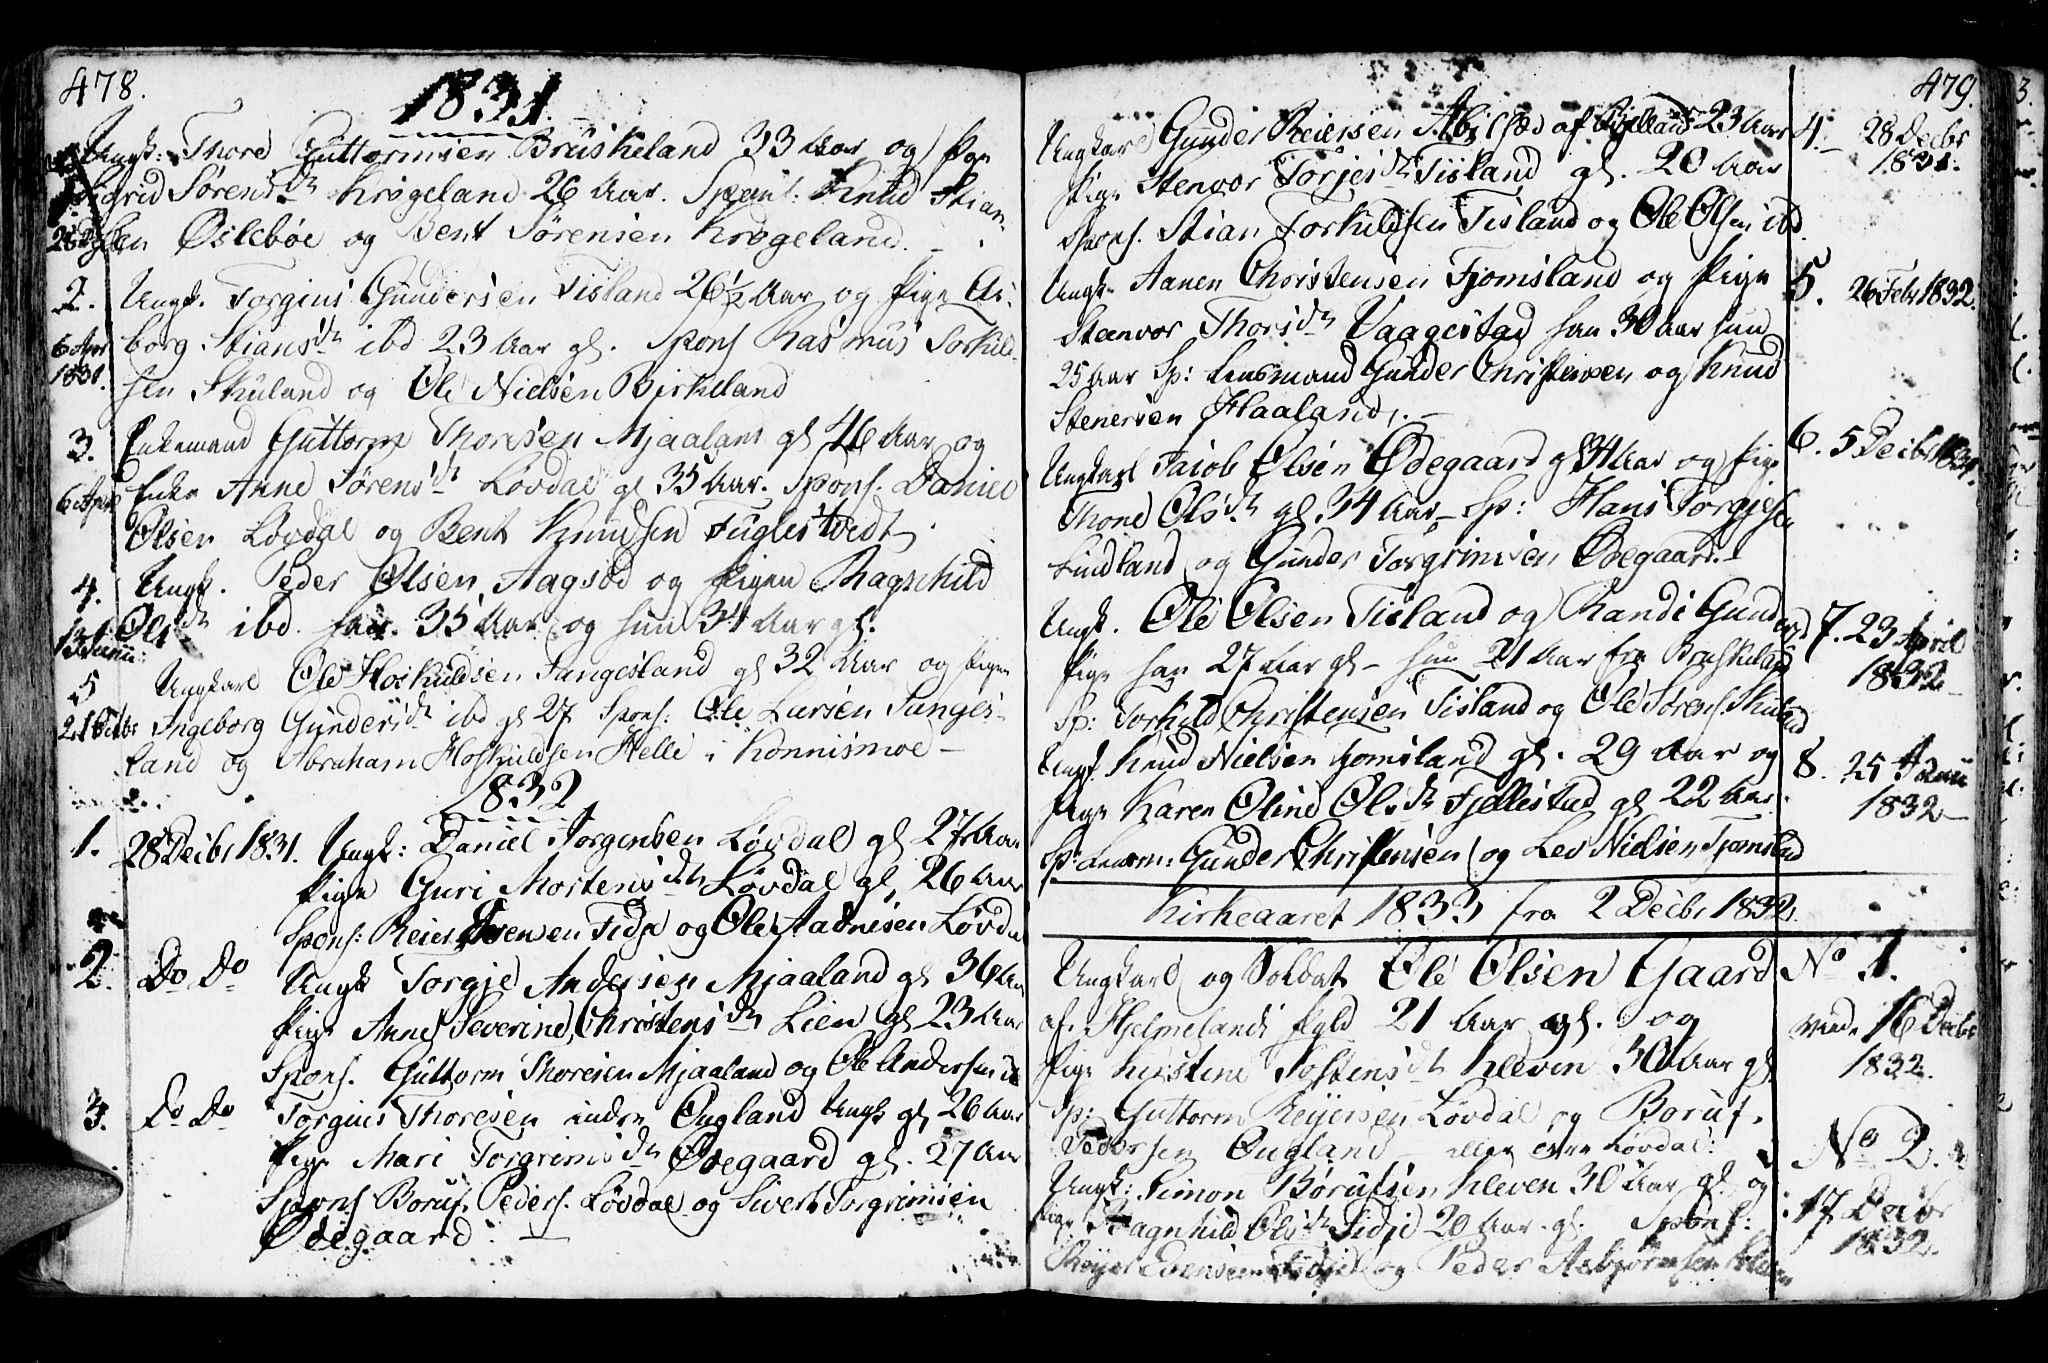 478.
1831.
Ungk: Thore Guttormsen Bruskeland 33 Aar og Pige
1.
Sigrid Sørensdr Krogeland 26 Aar. Spons: Knud Stian-
sen Oslebøe og Bent Sørensen Krogeland.
2. Ungk. Torgius Gundersen Tisland 26½ Aar og Pige As-
6 Apr 1831.
borg Stiansdr ibd 23 Aar gl. Spons Rasmus Torkild-
sen Skuland og Ole Nielsen Birkeland
3. Enkemand Guttorm Thoresen Mjaaland gl 46 Aar og
6 April
Enke Anne Sørensdr Løvdal gl 35 Aar. Spons. Daniel
Olsen Løvdal og Bent Knudsen Fuglestvedt
4. Ungk. Peder Olsen Aagsød og Pigen Ragnhild
13 Juni:
Olsdr ibd. han 35 Aar og hun 34 Aar gl.
5 Ungkarl Ole Hoskuldsen Sangesland gl 32 Aar og Pigen
21
Ingeborg Gundersdr ibd gl 27 Spons: Ole Larsen Sanges-
land og Abraham Hoskuldsen Helle i Konnismoe
1832
1. 28 Decbr 1831. Ungk: Daniel Jørgensen Løvdal gl 27 Aar
Pige Guri Mortensdr Løvdal gl. 26 Aar
Spons: Reier Evensen Fidje og Ole Aadnesen Løvdal
2. Do Do Ungk Torgje Andersen Mjaaland gl 36 Aar
Pige Anne Severine Christensdr Lien gl 23 Aar
Spons. Guttorm Thoresen Mjaaland og Ole Andersen ib
3. Do Do Torgius Thoresen indre Øugland Ungk gl 26 Aar
Pige Mari Torgrimsdr Ødegaard gl. 27 Aar
Spons Boruf Peders. Løvdal og Sivert Torgrimsen
Ødegaard.
479.
Ungkarl Gunder Reiersen af Bjelland 23 Aar 4. 28 Decbr
1831.
Pige Stenvor Torjesdr Tisland gl. 20 Aar
Spons. Stian Torkildsen Tisland og Ole Olsen ibd.
Ungk. Aanen Christensen Fjomsland og Pige 5. 26 Febr 1832.
Stenvor Thorsdr Vaagestad han 30 Aar hun
25 Aar Sp: Lensmand Gunder Christensen og Knud
Stenersen Haaland.
Ungkarl Jacob Olsen Ødegaard gl 34 Aar og Pige 6. 5 Decbr 1831.
Thone Olsdr gl. 34 Aar Sp: Hans Torgjesen
Lindland og Gunder Torgrimsen Ødegaard.
Ungk. Ole Olsen Tisland og Randi Gunders 7. 23 April
1832
Pige han 27 Aar gl – hun 21 Aar fra Bruskeland
Sp: Torkild Christensen Tisland og Ole Sørens. Skuland
Ungk. Knud Nielsen Fjomsland gl. 29 Aar og 8. 25 Juni
1832
Pige Karen Oline Olsdr Fjellestad gl 22 Aar.
Sp: Lensm: Gunder Christensen og Lev Nielsen Fjomsland
Kirkeaaret 1833 fra 2 Decbr 1832.
Ungkarl og Soldat Ole Olsen Gaard No 1.
af Hjelmelands Pgld 21 Aar gl. og 16 Decbr
1832.
Pige Kirstine Tostensdr Kleven 30 Aar gl
Sp: Guttorm Reijersen Løvdal og Boruf
Pedersen Øugland eller Løvdal:
No 2.
Ungk: Simon Børufsen Kleven 30 Aar gl og
17 Decbr
1832.
Pige Ragnhild Olsdr Fidje 20 Aar gl. Spons:
Reijer Evensen Fidje og Peder Asbjørnsen Kleven